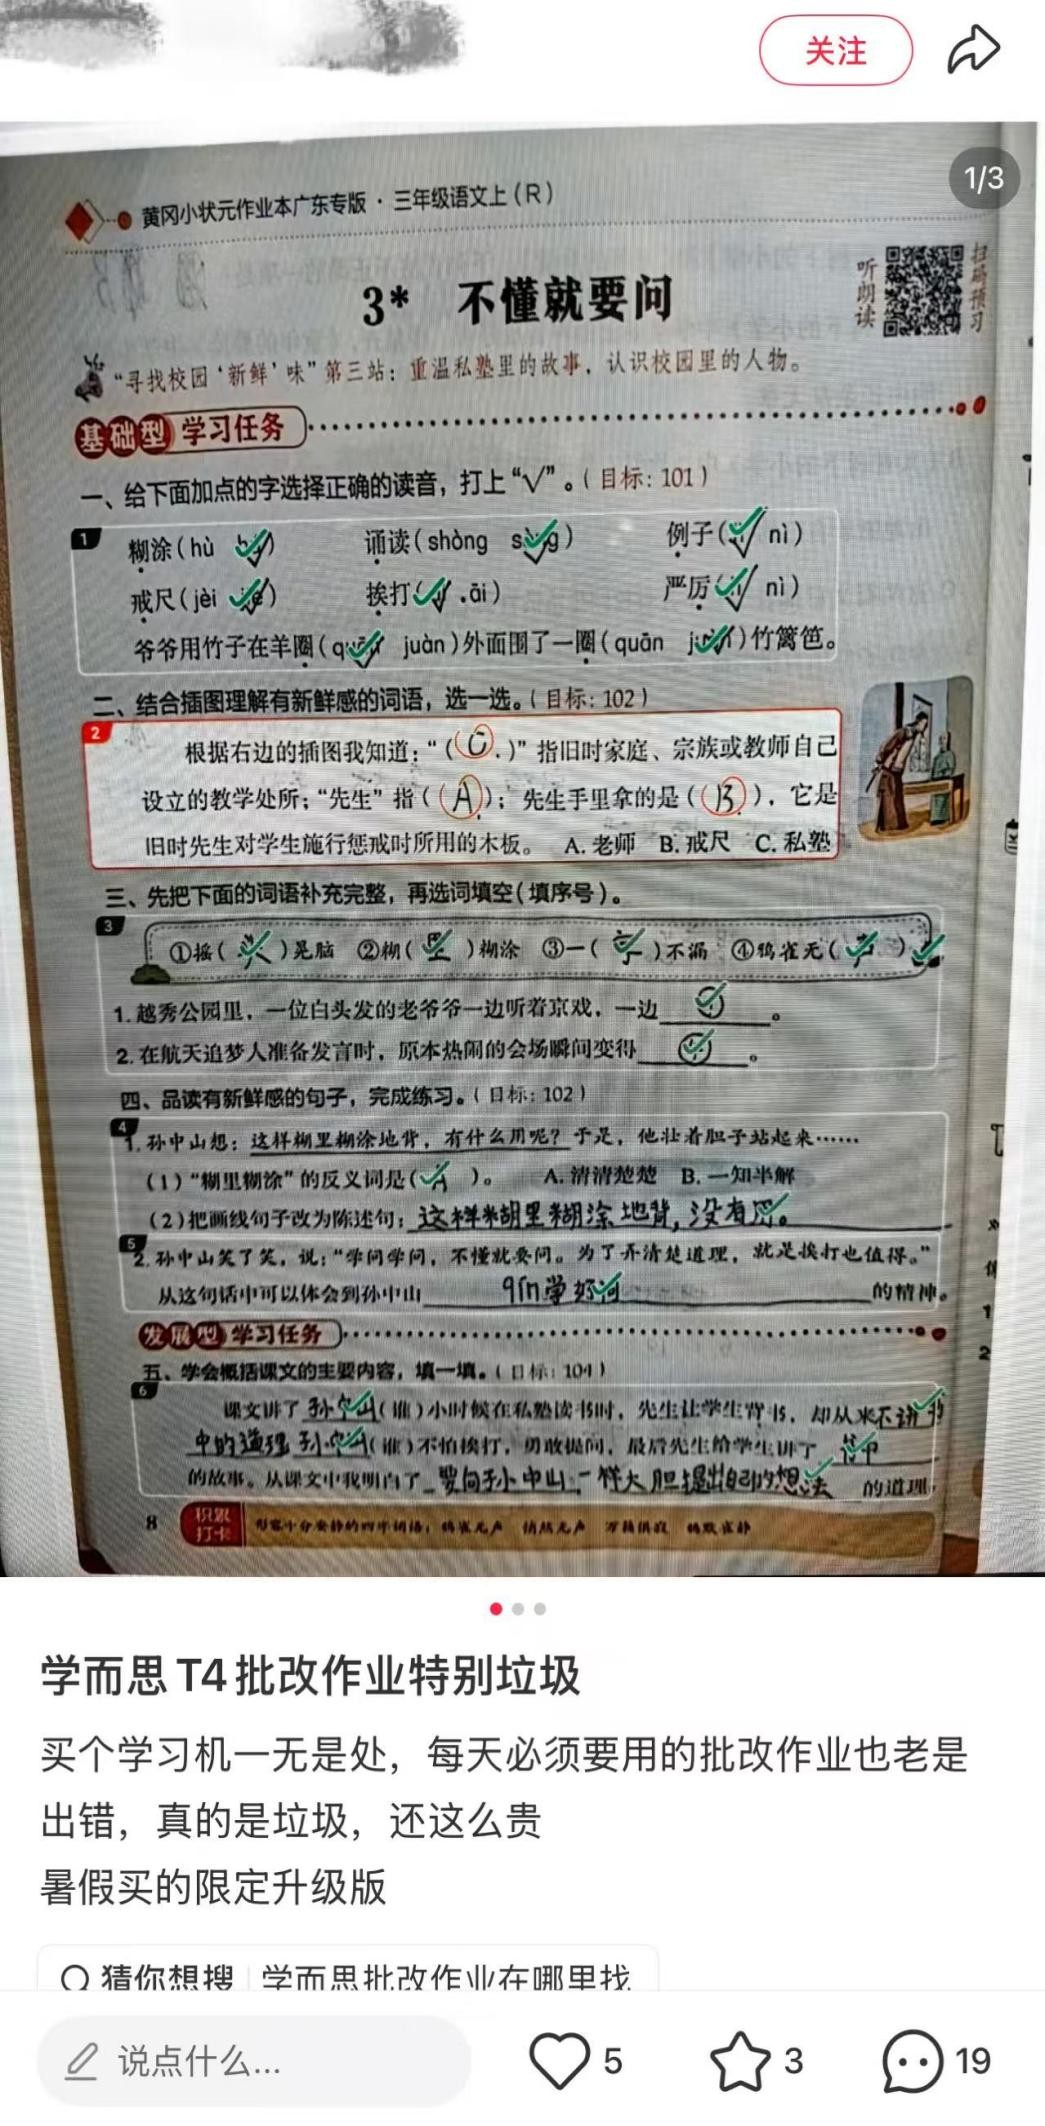 关注
1/3
黄冈小状元作业本广东专版·三年级语文上(R)
3* 不懂就要问
听朗读
扫码预习
“寻找校园‘新鲜’味”第三站：重温私塾里的故事，认识校园里的人物。
基础型 学习任务
一、给下面加点的字选择正确的读音，打上“√”。(目标：101)
1
糊涂(hù ) 诵读(shòng ) 例子( nì)
戒尺(jèi ) 挨打( āi) 严厉( nì)
爷爷用竹子在羊圈( juàn)外面围了一圈(quān )竹篱笆。
二、结合插图理解有新鲜感的词语，选一选。(目标：102)
2
根据右边的插图我知道：“(C.)”指旧时家庭、宗族或教师自己
设立的教学处所；“先生”指(A)；先生手里拿的是(B)，它是
旧时先生对学生施行惩戒时所用的木板。 A.老师 B.戒尺 C.私塾
三、先把下面的词语补充完整，再选词填空(填序号)。
3
①摇(头)晃脑 ②糊(里)糊涂 ③一(字)不漏 ④鸦雀无(声)
1.越秀公园里，一位白头发的老爷爷一边听着京戏，一边①。
2.在航天追梦人准备发言时，原本热闹的会场瞬间变得④。
四、品读有新鲜感的句子，完成练习。(目标：102)
4
1.孙中山想：这样糊里糊涂地背，有什么用呢？于是，他壮着胆子站起来……
(1)“糊里糊涂”的反义词是(A)。 A.清清楚楚 B.一知半解
(2)把画线句子改为陈述句：这样糊里糊涂地背，没有用。
5
2.孙中山笑了笑，说：“学问学问，不懂就要问。为了弄清楚道理，就是挨打也值得。”
从这句话中可以体会到孙中山 学好问 的精神。
发展型 学习任务
五、学会概括课文的主要内容，填一填。(目标：104)
6
课文讲了孙中山(谁)小时候在私塾读书时，先生让学生背书，却从来不讲书
中的道理 孙中山(谁)不怕挨打，勇敢提问，最后先生给学生讲了书中
的故事。从课文中我明白了 要向孙中山一样大胆提出自己的想法 的道理。
8
积累打卡
形容十分安静的四字词语：鸦雀无声 悄然无声 万籁俱寂 鸦默雀静
学而思T4批改作业特别垃圾
买个学习机一无是处，每天必须要用的批改作业也老是
出错，真的是垃圾，还这么贵
暑假买的限定升级版
猜你想搜 学而思批改作业在哪里找
说点什么...
5
3
19